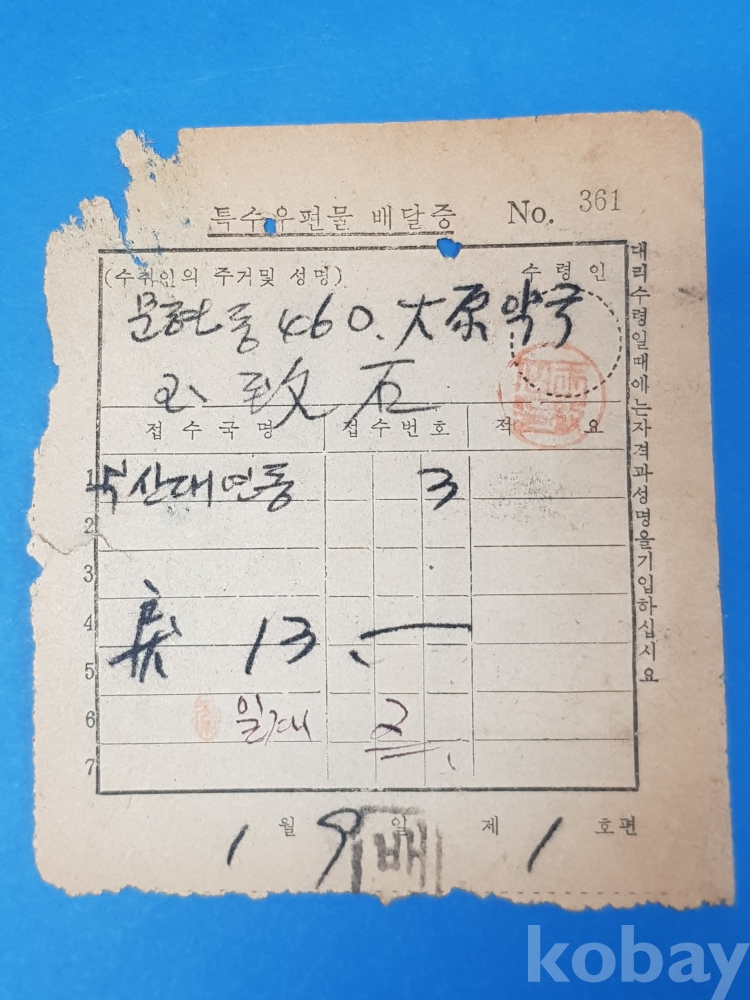 특수우편물 배달증 No. 361
(수취인의 주거및 성명) 수령인
문현동 460. 大原 약국
致石
접수국명 접수번호 적 요
1 부산대연동 3
2
3
4
5 13.
6 일재 2
7
1 월 9 일 제 1 호편
배
대리수령일때에는자격과성명을기입하십시요
kobay